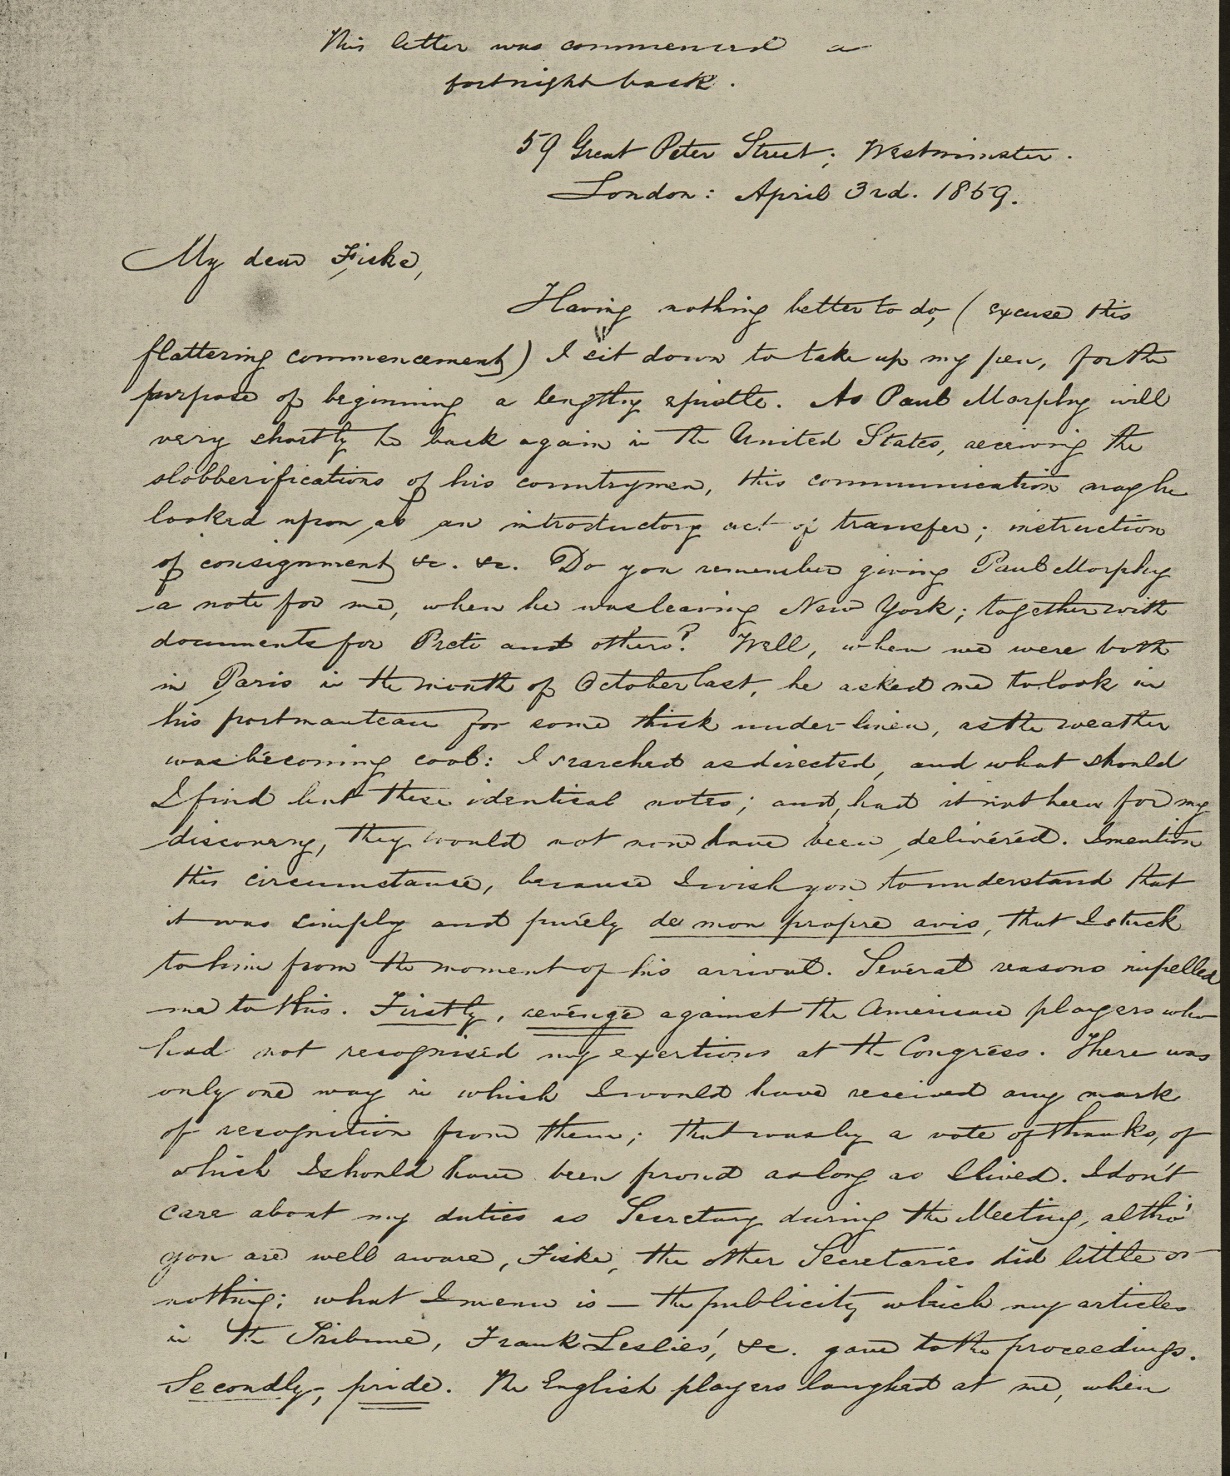 This letter was commenced a
fortnight back.
59 Great Peter Street; Westminster.
London: April 3rd. 1859.
My dear Fiske,
Having nothing better to do, (excuse this
flattering commencement) I sit down to take up my pen, for the
purpose of beginning a lengthy epistle. As Paul Morphy will
very shortly be back again in the United States, receiving the
slobberifications of his countrymen, this communication may be
looked upon as an introductory act of transfer; instruction
of consignment &c. &c. Do you remember giving Paul Morphy
a note for me, when he was leaving New York; together with
documents for Preti and others? Well, when we were both
in Paris in the month of October last, he asked me to look in
his portmanteau for some thick under-linen, as the weather
was becoming cool: I searched as directed, and what should
I find but these identical notes; and, had it not been for my
discovery, they would not now have been delivered. I mention
this circumstance, because I wish you to understand that
it was simply and purely de mon propre avis, that I stuck
to him from the moment of his arrival. Several reasons impelled
me to this. Firstly, revenge against the American players who
had not recognised my exertions at the Congress. There was
only one way in which I would have received any mark
of recognition from them; that was by a vote of thanks, of
which I should have been proud as long as I lived. I don't
care about my duties as Secretary during the Meeting, altho'
you are well aware, Fiske, the other Secretaries did little or
nothing; what I mean is — the publicity which my articles
in the Tribune, Frank Leslies', &c. gave to the proceedings.
Secondly, pride. The English players laughed at me, when